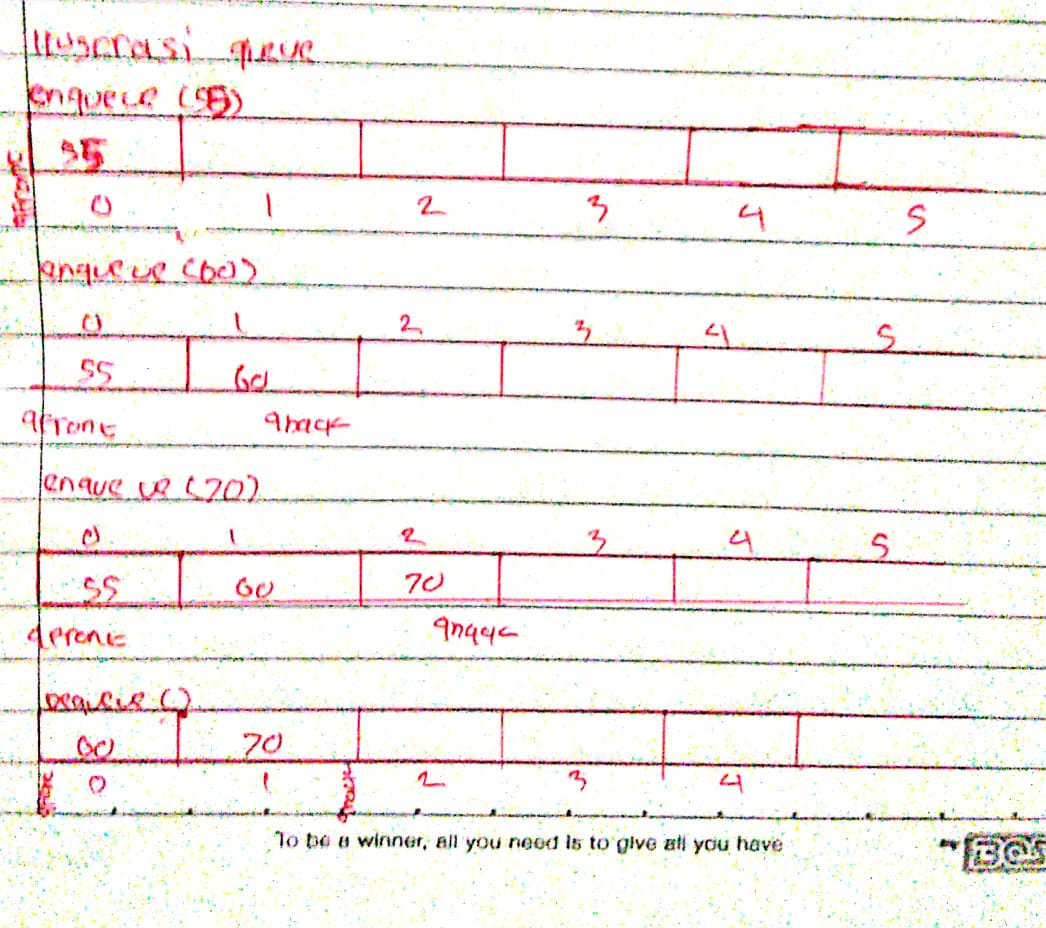 Ilustrasi queue
enqueue (55)
55
qfront
0 1 2 3 4 5
enqueue (60)
0 1 2 3 4 5
55 60
qfront qback
enqueue (70)
0 1 2 3 4 5
55 60 70
qfront qback
Dequeue ()
60 70
qfront 0 1 qback 2 3 4
To be a winner, all you need is to give all you have